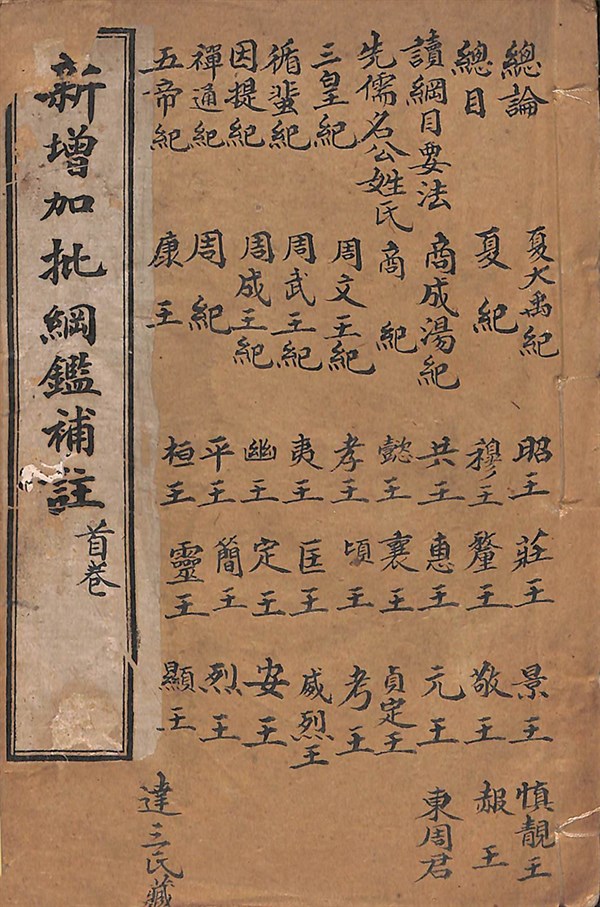 總論
總目
讀綱目要法
先儒名公姓氏
三皇紀
循蜚紀
因提紀
禪通紀
五帝紀
夏大禹紀
夏紀
商成湯紀
商紀
周文王紀
周武王紀
周成王紀
周紀
康王
昭王
穆王
共王
懿王
孝王
夷王
幽王
平王
桓王
莊王
釐王
惠王
襄王
頃王
匡王
定王
簡王
靈王
景王
敬王
元王
貞定王
考王
威烈王
安王
烈王
顯王
慎靚王
赧王
東周君
達三氏藏
新增加批綱鑑補註
首卷